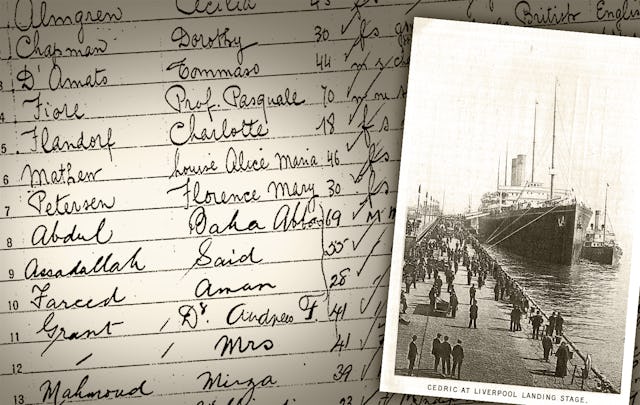 Almgren Cecilia 43 f s British English
Chapman Dorothy 30 f s
3 D'Amato Tommaso 44 m s
4 Fiore Prof. Pasquale 70 m m
5 Flandorf Charlotte 18 f s
6 Mathew Louise Alice Maria 46 f s
7 Petersen Florence Mary 30 f s
8 Abdul Baha Abbas 69 m
9 Assadallah Said 55
10 Fareed Aman 28
11 Grant Dr. Andrew F. 41
12 " " Mrs 41
13 Mahmoud Mirza 39
CEDRIC AT LIVERPOOL LANDING STAGE.